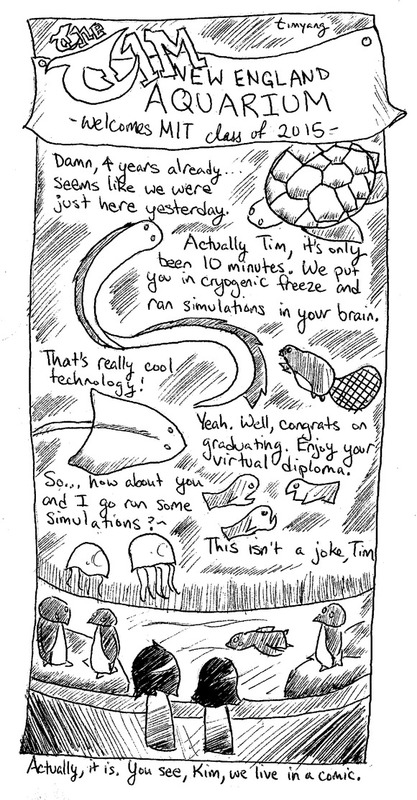 timyang
NEW ENGLAND
AQUARIUM
-welcomes MIT class of 2015-
Damn, 4 years already...
Seems like we were
just here yesterday.
Actually Tim, it's only
been 10 minutes. We put
you in cryogenic freeze and
ran simulations in your brain.
That's really cool
technology!
Yeah. Well, congrats on
graduating. Enjoy your
virtual diploma.
So... how about you
and I go run some
simulations?~
This isn't a joke, Tim
Actually, it is. You see, Kim, we live in a comic.